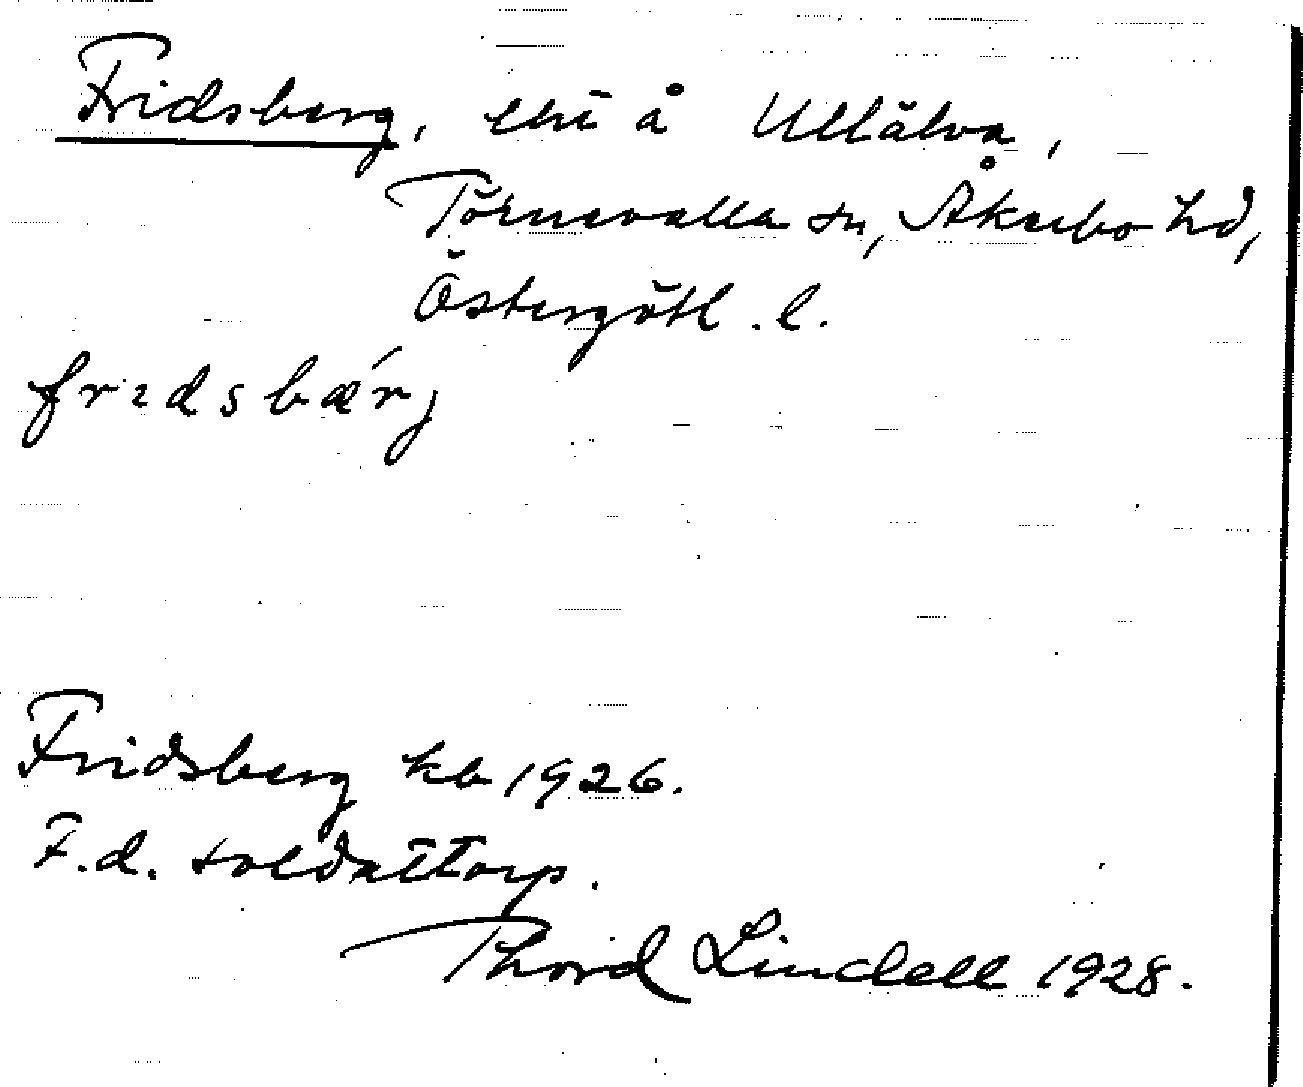 Fridsberg, lht å Ullälva,
Törnevalla sn, Åkerbo hd,
Östergötl. l.
frɪdsbæŕj
Fridsberg kb 1926.
F.d. soldattorp.
Thord Lindell 1928.